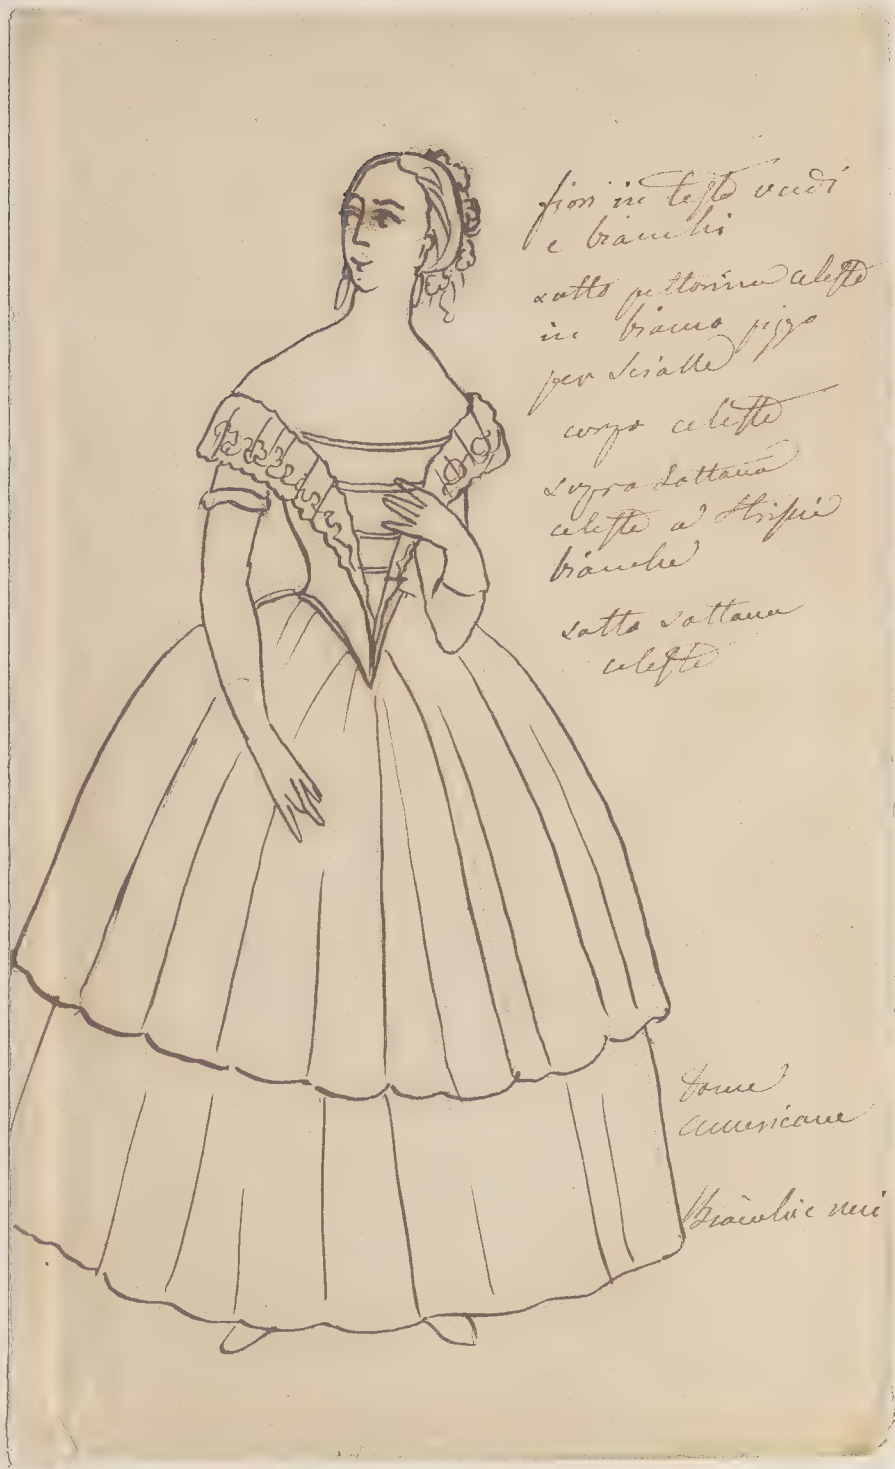 fiori in testa verdi
e bianchi
sotto pettorina celeste
in bianco pizzo
per scialle
corpo celeste
sopra sottana
celeste a strisie
bianche
sotto sottana
celeste
Donne
Americane
Bianchi e neri